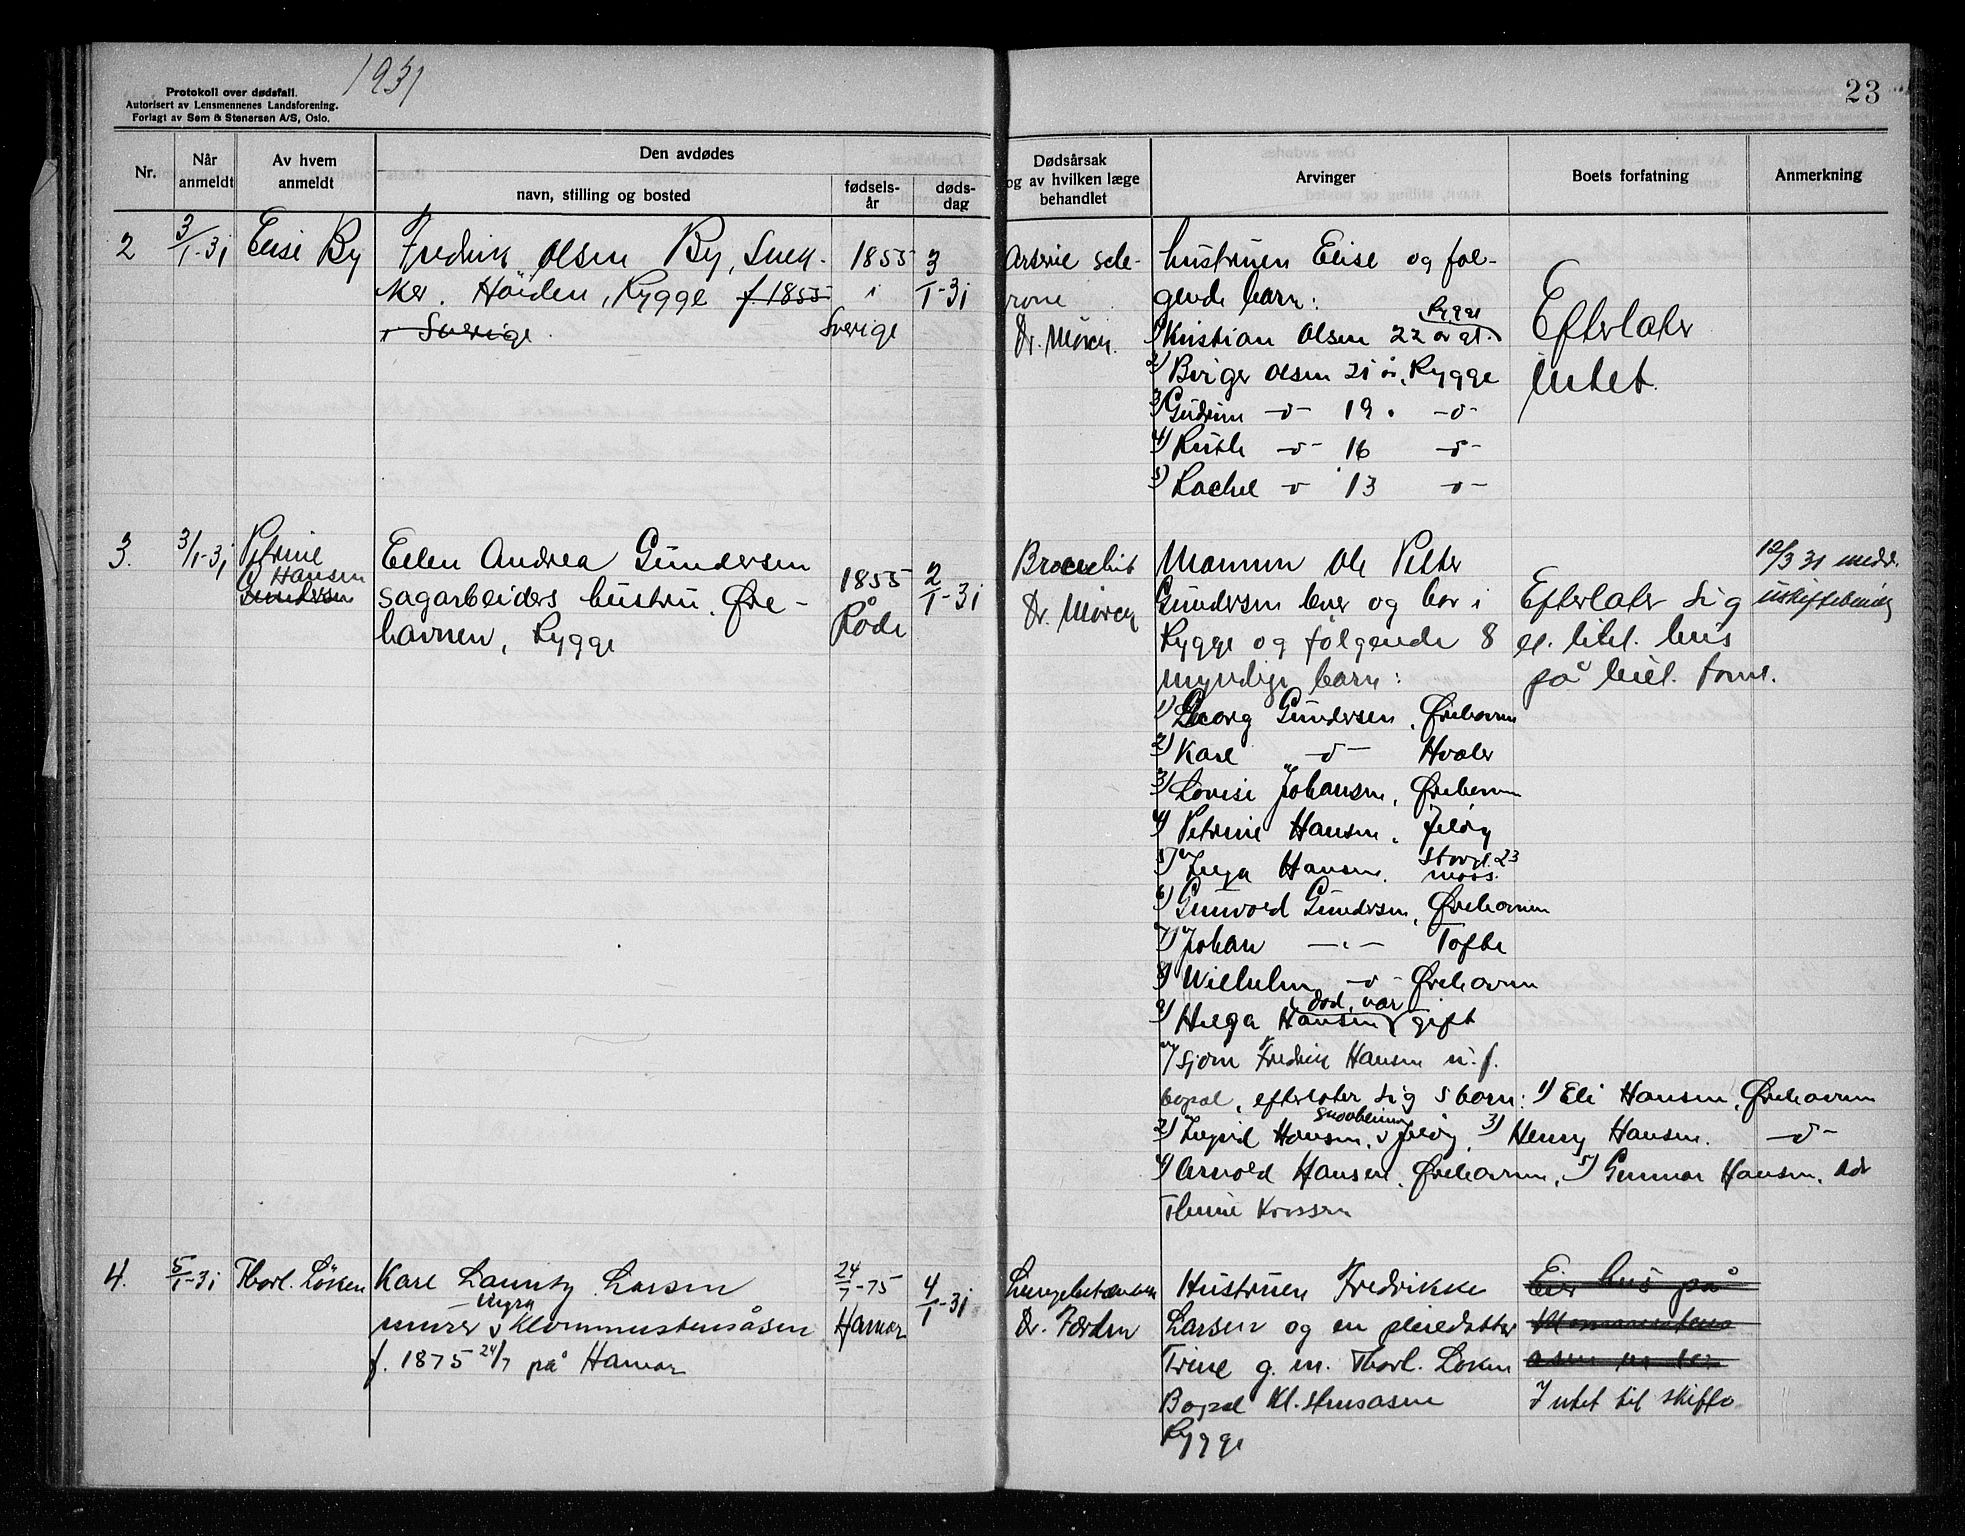 1931
23
Protokoll over dødsfall.
Autorisert av Lensmennenes Landsforening.
Forlagt av Sem & Stenersen A/S, Oslo.
Nr.
Når anmeldt
Av hvem anmeldt
Den avdødes
navn, stilling og bosted
fødsels-år
døds-dag
Dødsårsak
og av hvilken læge
behandlet
Arvinger
Boets forfatning
Anmerkning
2
3/1-31
Elise By
Fredrik Olsen By, Snek-
ker. Höiden, Rygge f. 1855
i Sverige
1855
i
Sverige
3/1-31
Dr. Mörch.
hustruen Elise og føl-
gende barn:
Rygge
1) Kristian Olsen 22 år gl.
2) Birger Olsen 21 år, Rygge
3) Gudrun -d- 19 -d-
4) Ruth -d- 16 -d-
5) Rachel -d- 13 -d-
Efterlater
intet.
3.
3/1-31
Petrine
Hansen
Gundersen
Ellen Andrea Gundersen
sagarbeiders hustru, Øre-
havnen, Rygge
1855
Råde
2/1-31
Dr. Mörch
Mannen Ole Petter
Gundersen lever og bor i
Rygge og følgende 8
myndige barn:
1) Georg Gundersen, Ørehavnen
2) Karl -d- Hvaler
3) Lovise Johansen, Ørehavnen
4) Petrine Hansen, Jeløy
5) Inga Hansen, Storgt. 23
Moss.
6) Gunvald Gundersen, Ørehavnen
7) Johan -"- Tofte
8) Wilhelm -d- Ørehavnen
død, var
9) Helga Hansen gift
m/ sjöm. Fredrik Hansen u. f.
bopæl, efterlater sig 5 barn: 1) Eli Hansen, Ørehavnen
2) Ingrid Hansen, Jeløy, 3) Henry Hansen. -d-
4) Arnold Hansen, Ørehavnen, 5) Gunnar Hansen, adr
Efterlater sig
et litet hus
på leiet tomt.
12/3 31 medd.
uskiftebevilg
4.
5/1-31
Thorl. Löken
Karl Lauritz Larsen
murer Klommestensåsen
f. 1875 24/7 på Hamar
24/7-75
Hamar
4/1-31
Lungebetændelse
Dr. Førden
Hustruen Fredrikke
Larsen og en pleiedatter
Trine g. m. Thorl. Löken
Bopæl Kl.stensåsen
Rygge
Eier hus på
Intet til skifte